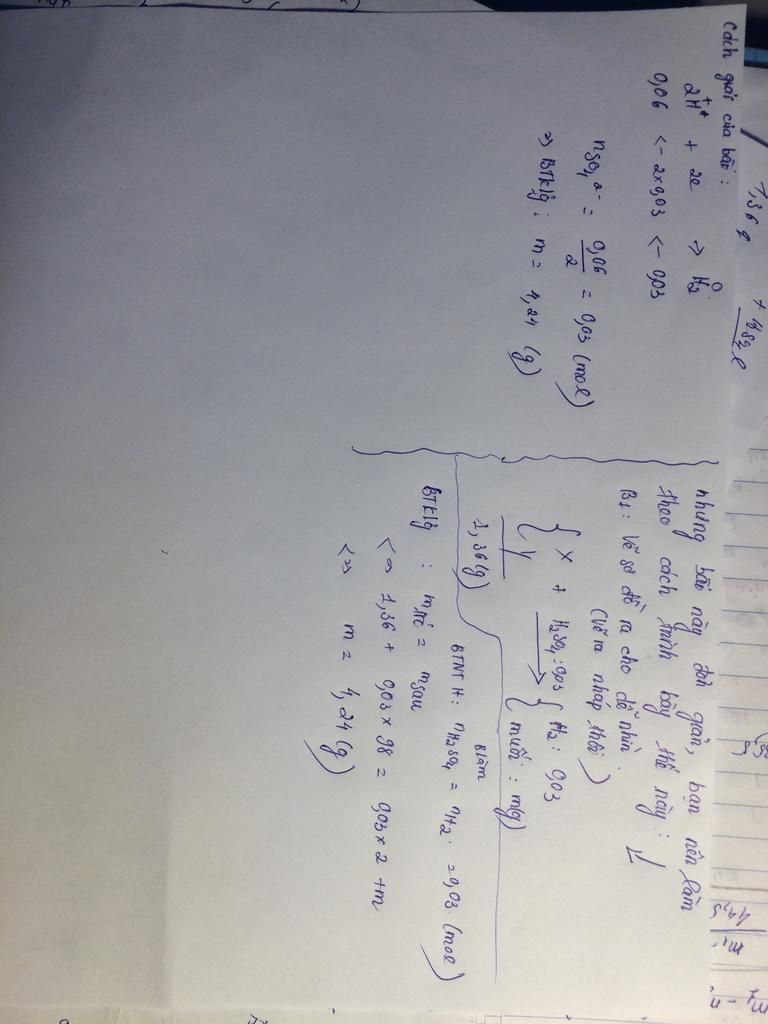 1,36 g + H2SO4 l
Cách giải của bạn:
2H+ + 2e → H2 0
0,06 <- 2x0,03 <- 0,03
nSO4 2- = 0,06/2 = 0,03 (mol)
=> BTklg: m = 4,24 (g)
nhưng bài này đơn giản, bạn nên làm
theo cách trình bày thế này: ↓
B1: Vẽ sơ đồ ra cho dễ nhìn
(Vẽ ra nháp thôi)
{ X + H2SO4: 0,03 → { H2: 0,03
Y muối: m(g)
1,36(g)
B làm
BTNT H: nH2SO4 = nH2 = 0,03 (mol)
BTklg: mtrc = msau
<=> 1,36 + 0,03 x 98 = 0,03 x 2 + m
<=> m = 4,24 (g)